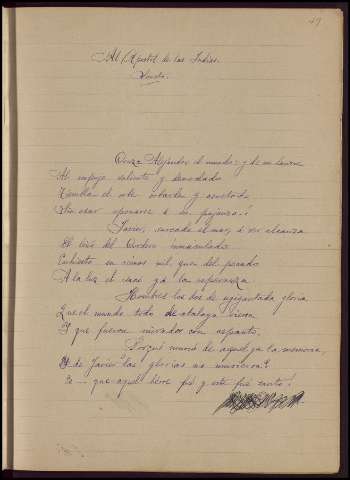 49
Al Apostol de las Indias.
Soneto.
Cruza Alejandro el mundo: y de su lanza
Al empuje valiente y denodado
Tiembla el orbe cobarde y asustado,
Sin osar oponerse á su pujanza.
Javier, surcado el mar, á ver alcanza
El lirio del Cordero inmaculado
Enhiesto en reinos mil, que del pecado
A la luz el paso y á la esperanza
Hombres los dos de agigantada gloria
Que el mundo todo de atalaya vieron
Y que fueron mirados con espanto.
Porqué murió de aquel ya la memoria,
Y de Javier las glorias no murieron?
Es que aquel héroe fué y este fué santo!